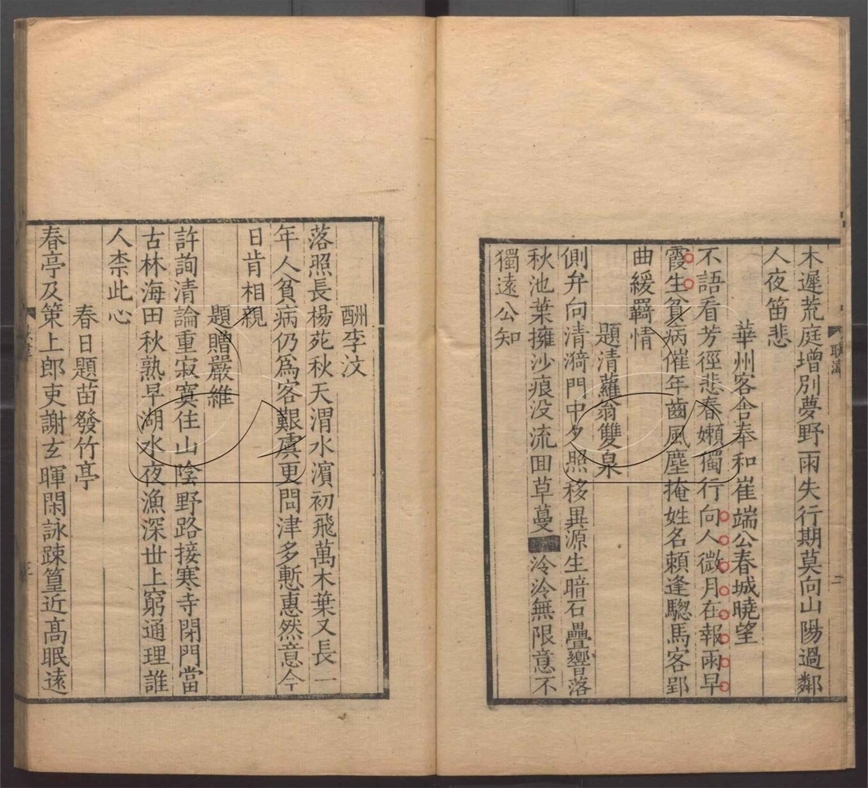 木遲荒庭增別夢野雨失行期莫向山陽過鄰
人夜笛悲
華州客舍奉和崔端公春城曉望
不語看芳徑悲春嬾獨行向人微月在報雨早
霞生貧病催年齒風塵掩姓名賴逢驄馬客郢
曲緩羇情
題清蘿翁雙泉
側弁向清漪門中夕照移異源生暗石疊響落
秋池葉擁沙痕沒流囬草蔓泠泠無限意不
獨遠公知
酬李汶
落照長楊苑秋天渭水濵初飛萬木葉又長一
年人貧病仍爲客艱虞更問津多慙惠然意今
日肯相親
題贈嚴維
許詢清論重寂寞住山陰野路接寒寺閉門當
古林海田秋熟早湖水夜漁深丗上窮通理誰
人柰此心
春日題苗發竹亭
春亭及策上郎吏謝玄暉閑詠踈篁近髙眠逺